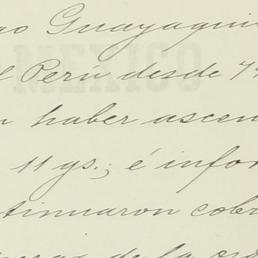 ao Guayaqui
l Perú desde 7
n haber ascen
11 gs.; é info
tinuaron cob